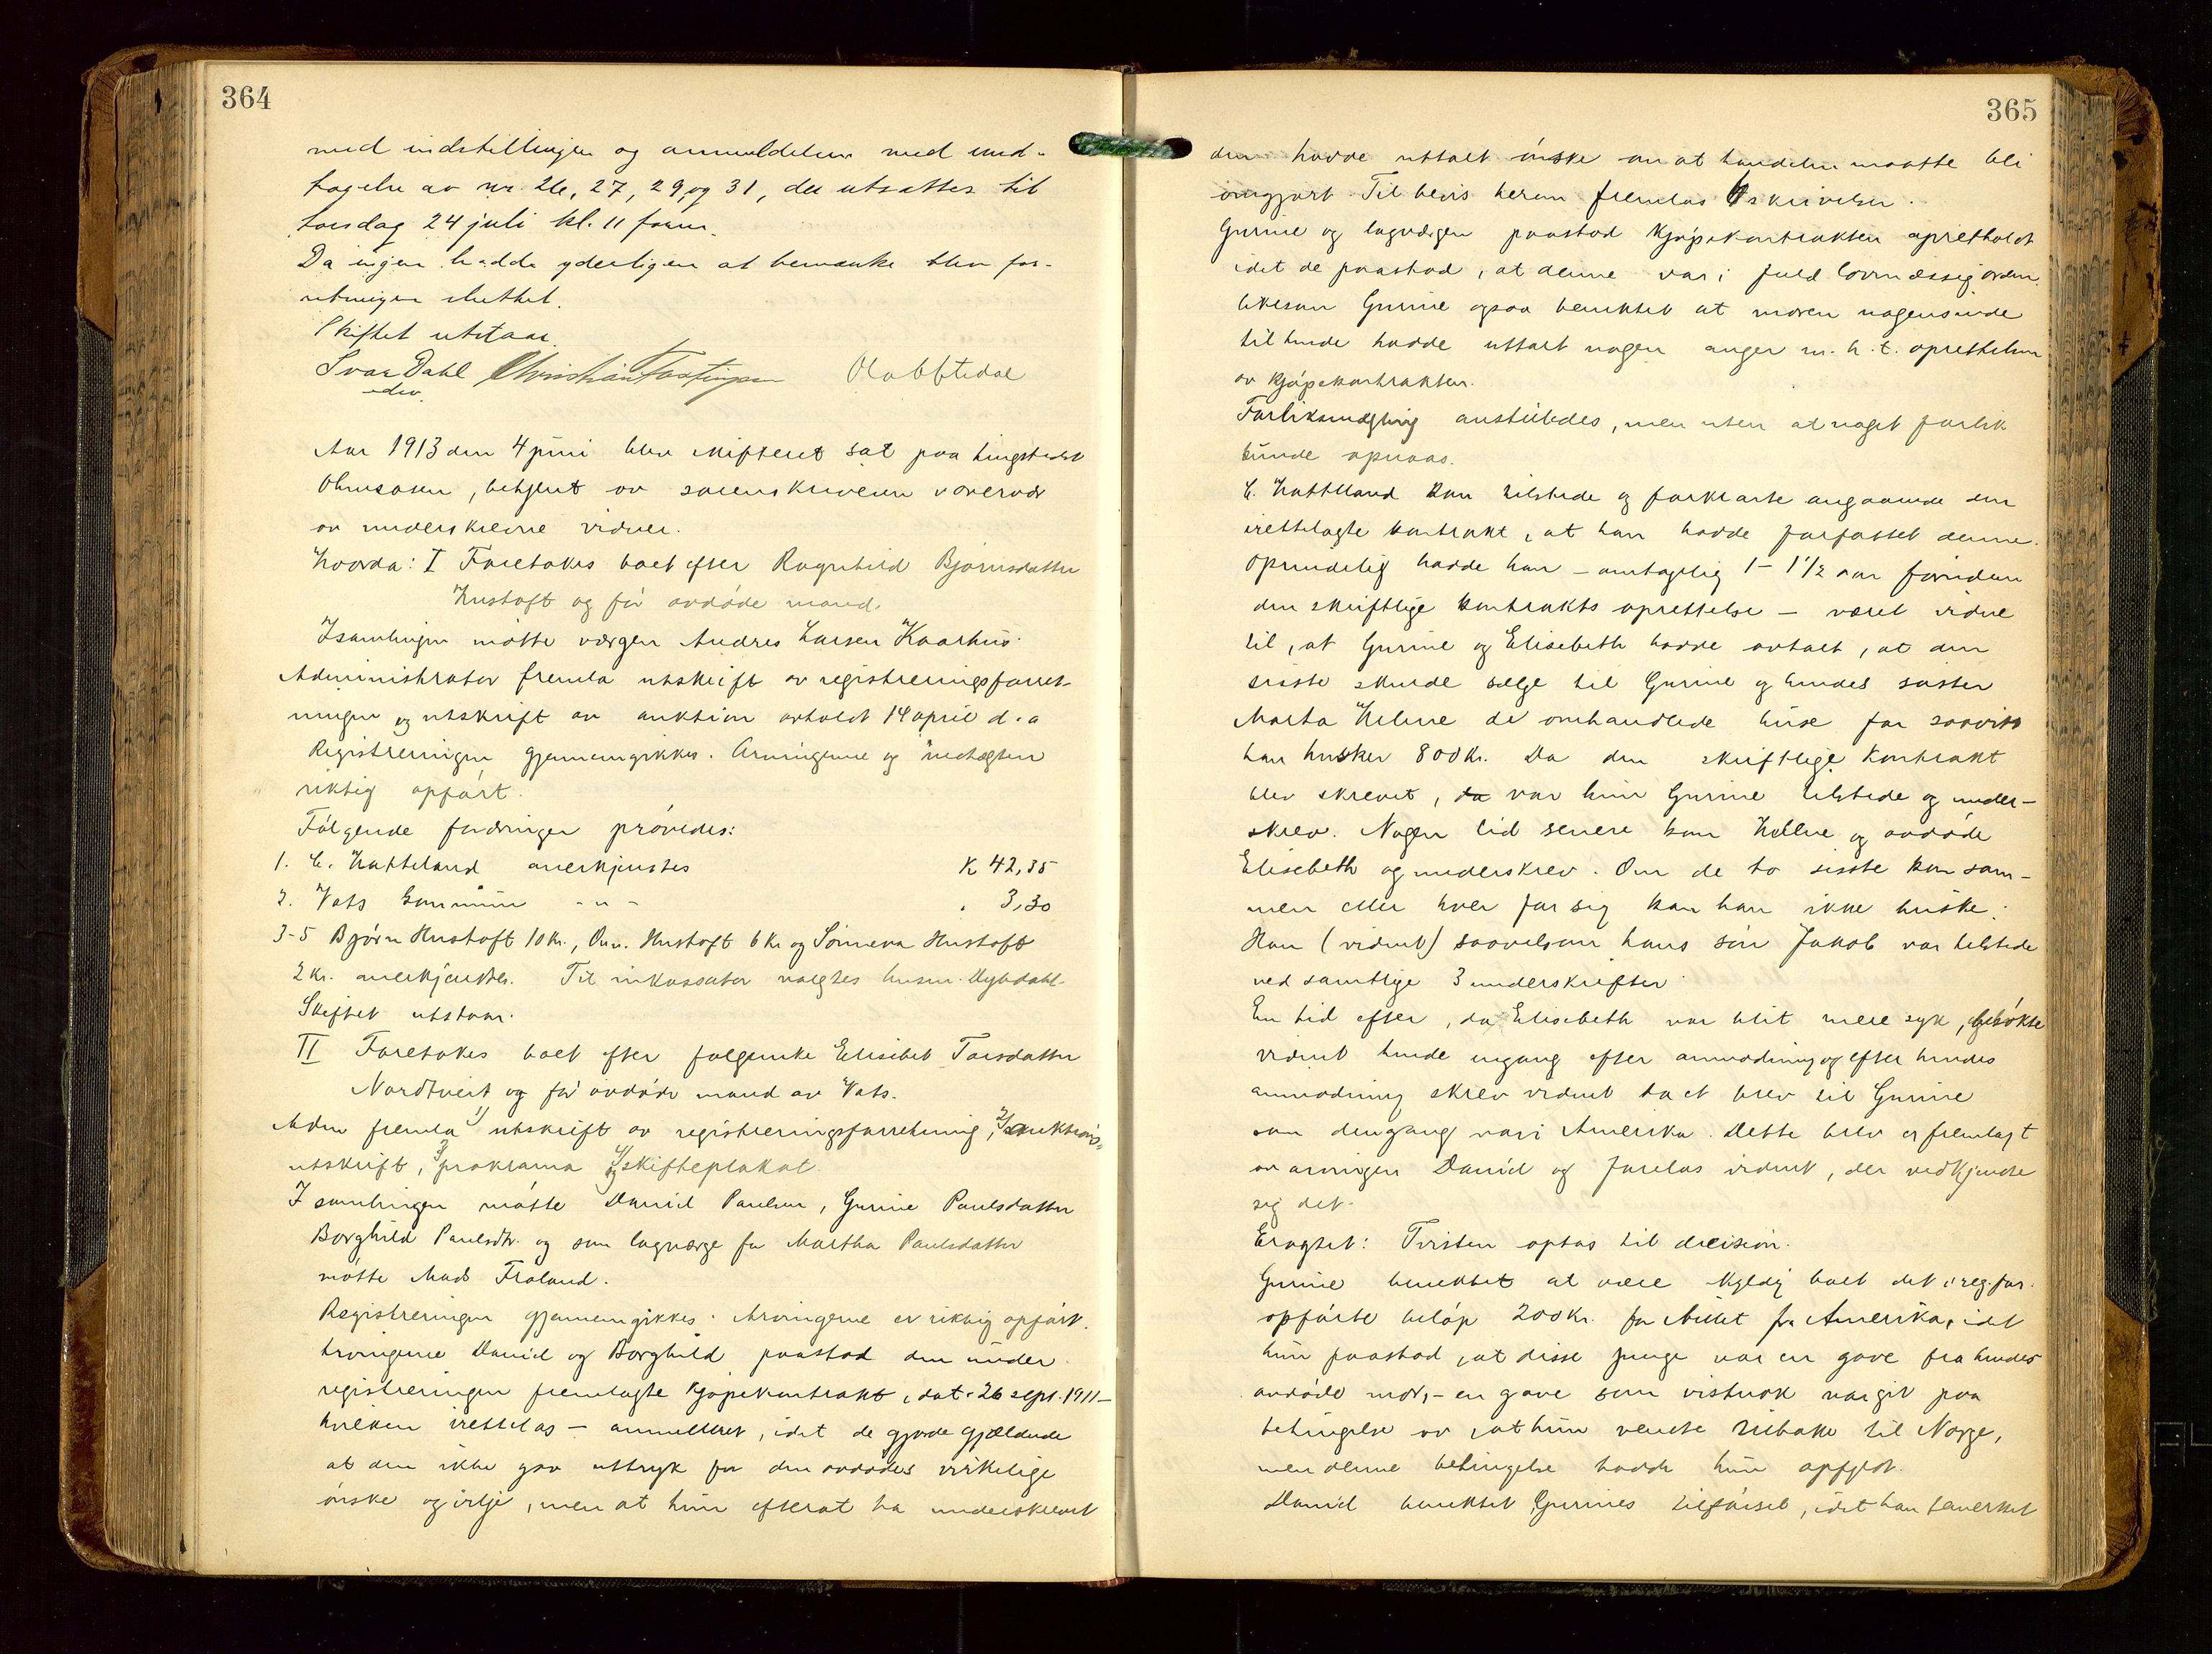 364
med indstillingen og anmeldelsen med und-
tagelse av nr. 26, 27, 29, og 31, der utsattes til
torsdag 24 juli kl. 11 form.
Da ingen hadde yderligere at bemerke blev for-
retningen sluttet.
Skiftet utstaar.
Ivar Dahl Christian Olabbtedal
edsv.
Aar 1913 den 4 juni blev skifteret sat paa tingstedet
Ølensosen, betjent av sorenskriveren i overvær
av underskrevne vidner.
Hvorda: I Foretokes boet efter Ragnhild Bjørnsdatter
Hustoft og før avdøde mand.
I samlingen møtte vergen Andres Larsen Kaarhus.
Administrator fremla utskrift av registreringsforret-
ningen og utskrift av auktion avholdt 14 april d.a
Registreringen gjennemgikkes. Arvingerne og indtægten
riktig opført.
Følgende fordringer prøvedes:
1. C. Hatteland anerkjendtes K 42,35
2. Vats kommune - " - " 3,30
3-5 Bjørn Hustoft 10 Kr., Om. Hustoft 6 Kr og Sønneva Hustoft
2 Kr. anerkjendtes. Til inkassator valgtes lensm. Dybdahl.
Skiftet utstaar.
II Foretokes boet efter følgenke Elisabet Torsdatter
Nordtveit og før avdøde mand av Vats.
Adm fremla 1) utskrift av registreringsforretning, 2) auktions-
utskrift, 3) proklama og 4) skifteplakat.
I samlingen møtte Daniel Paulsen, Gurine Paulsdatter
Borghild Paulsdtr. og som lagverge for Martha Paulsdatter
møtte Mads Frøland.
Registreringen gjennemgikkes. Arvingerne er riktig opført.
Arvingerne Daniel og Borghild paastod den under
registreringen fremlagte kjøpekontrakt, dat. 26 sept. 1911 –
hvilken irettelas – annulleret, idet de gjorde gjældende
at den ikke gav uttryk for den avdødes virkelige
ønske og vilje, men at hun efterat ha underskrevet
365
den hadde uttalt ønske om at handelen maatte bli
omgjort. Til bevis herom fremlas skrivelser.
Gurine og lagvergen paastod kjøpekontrakten opretholdt
idet de paastod, at denne var i fuld lovmæssig orden.
likesom Gurine ogsaa benektet at moren nogensinde
til hende hadde uttalt nogen anger m.h.t. oprettelsen
av kjøpekontrakten.
Forliksmægling anstilledes, men uten at noget forlik
kunde opnaas.
C. Hatteland kom tilstede og forklarte angaaende den
irettelagte kontrakt, at han hadde forfattet denne.
Oprindelig hadde han – antagelig 1 – 1½ aar forinden
den skriftlige kontrakts oprettelse – været vidne
til, at Gurine og Elisabeth hadde avtalt, at den
sisste skulde sælge til Gurine og hendes søster
Marta Helene de omhandlede huse for saavidt
han husker 800 Kr. Da den skriftlige kontrakt
blev skrevet, da var kun Gurine tilstede og under-
skrev. Nogen tid senere kom Helene og avdøde
Elisebeth og underskrev. Om de to sisste kom sam-
men eller hver for sig kan han ikke huske.
Han (vidnet) saavelsom hans søn Jakob var tilstede
ved samtlige 3 underskrifter.
En tid efter, da Elisebeth var blit mere syk, besøkte
vidnet hende engang efter anmodning og efter hendes
anmodning skrev vidnet da et brev til Gurine
som dengang var i Amerika. Dette brev er fremlagt
av arvingen Daniel og forelas vidnet, der vedkjendte
sig det.
Eragtet: Tvisten optas til decision.
Gurine benektet at være skyldig boet det i reg.for.
opførte beløp 200 Kr. for billet fra Amerika, idet
hun paastod, at disse penge var en gave fra hendes
avdøde mor, – en gave som vistnok var git paa
betingelse av, at hun vendte tilbake til Norge,
men denne betingelse hadde hun opfyldt.
Daniel benektet Gurines tilførsel, idet han bemerket